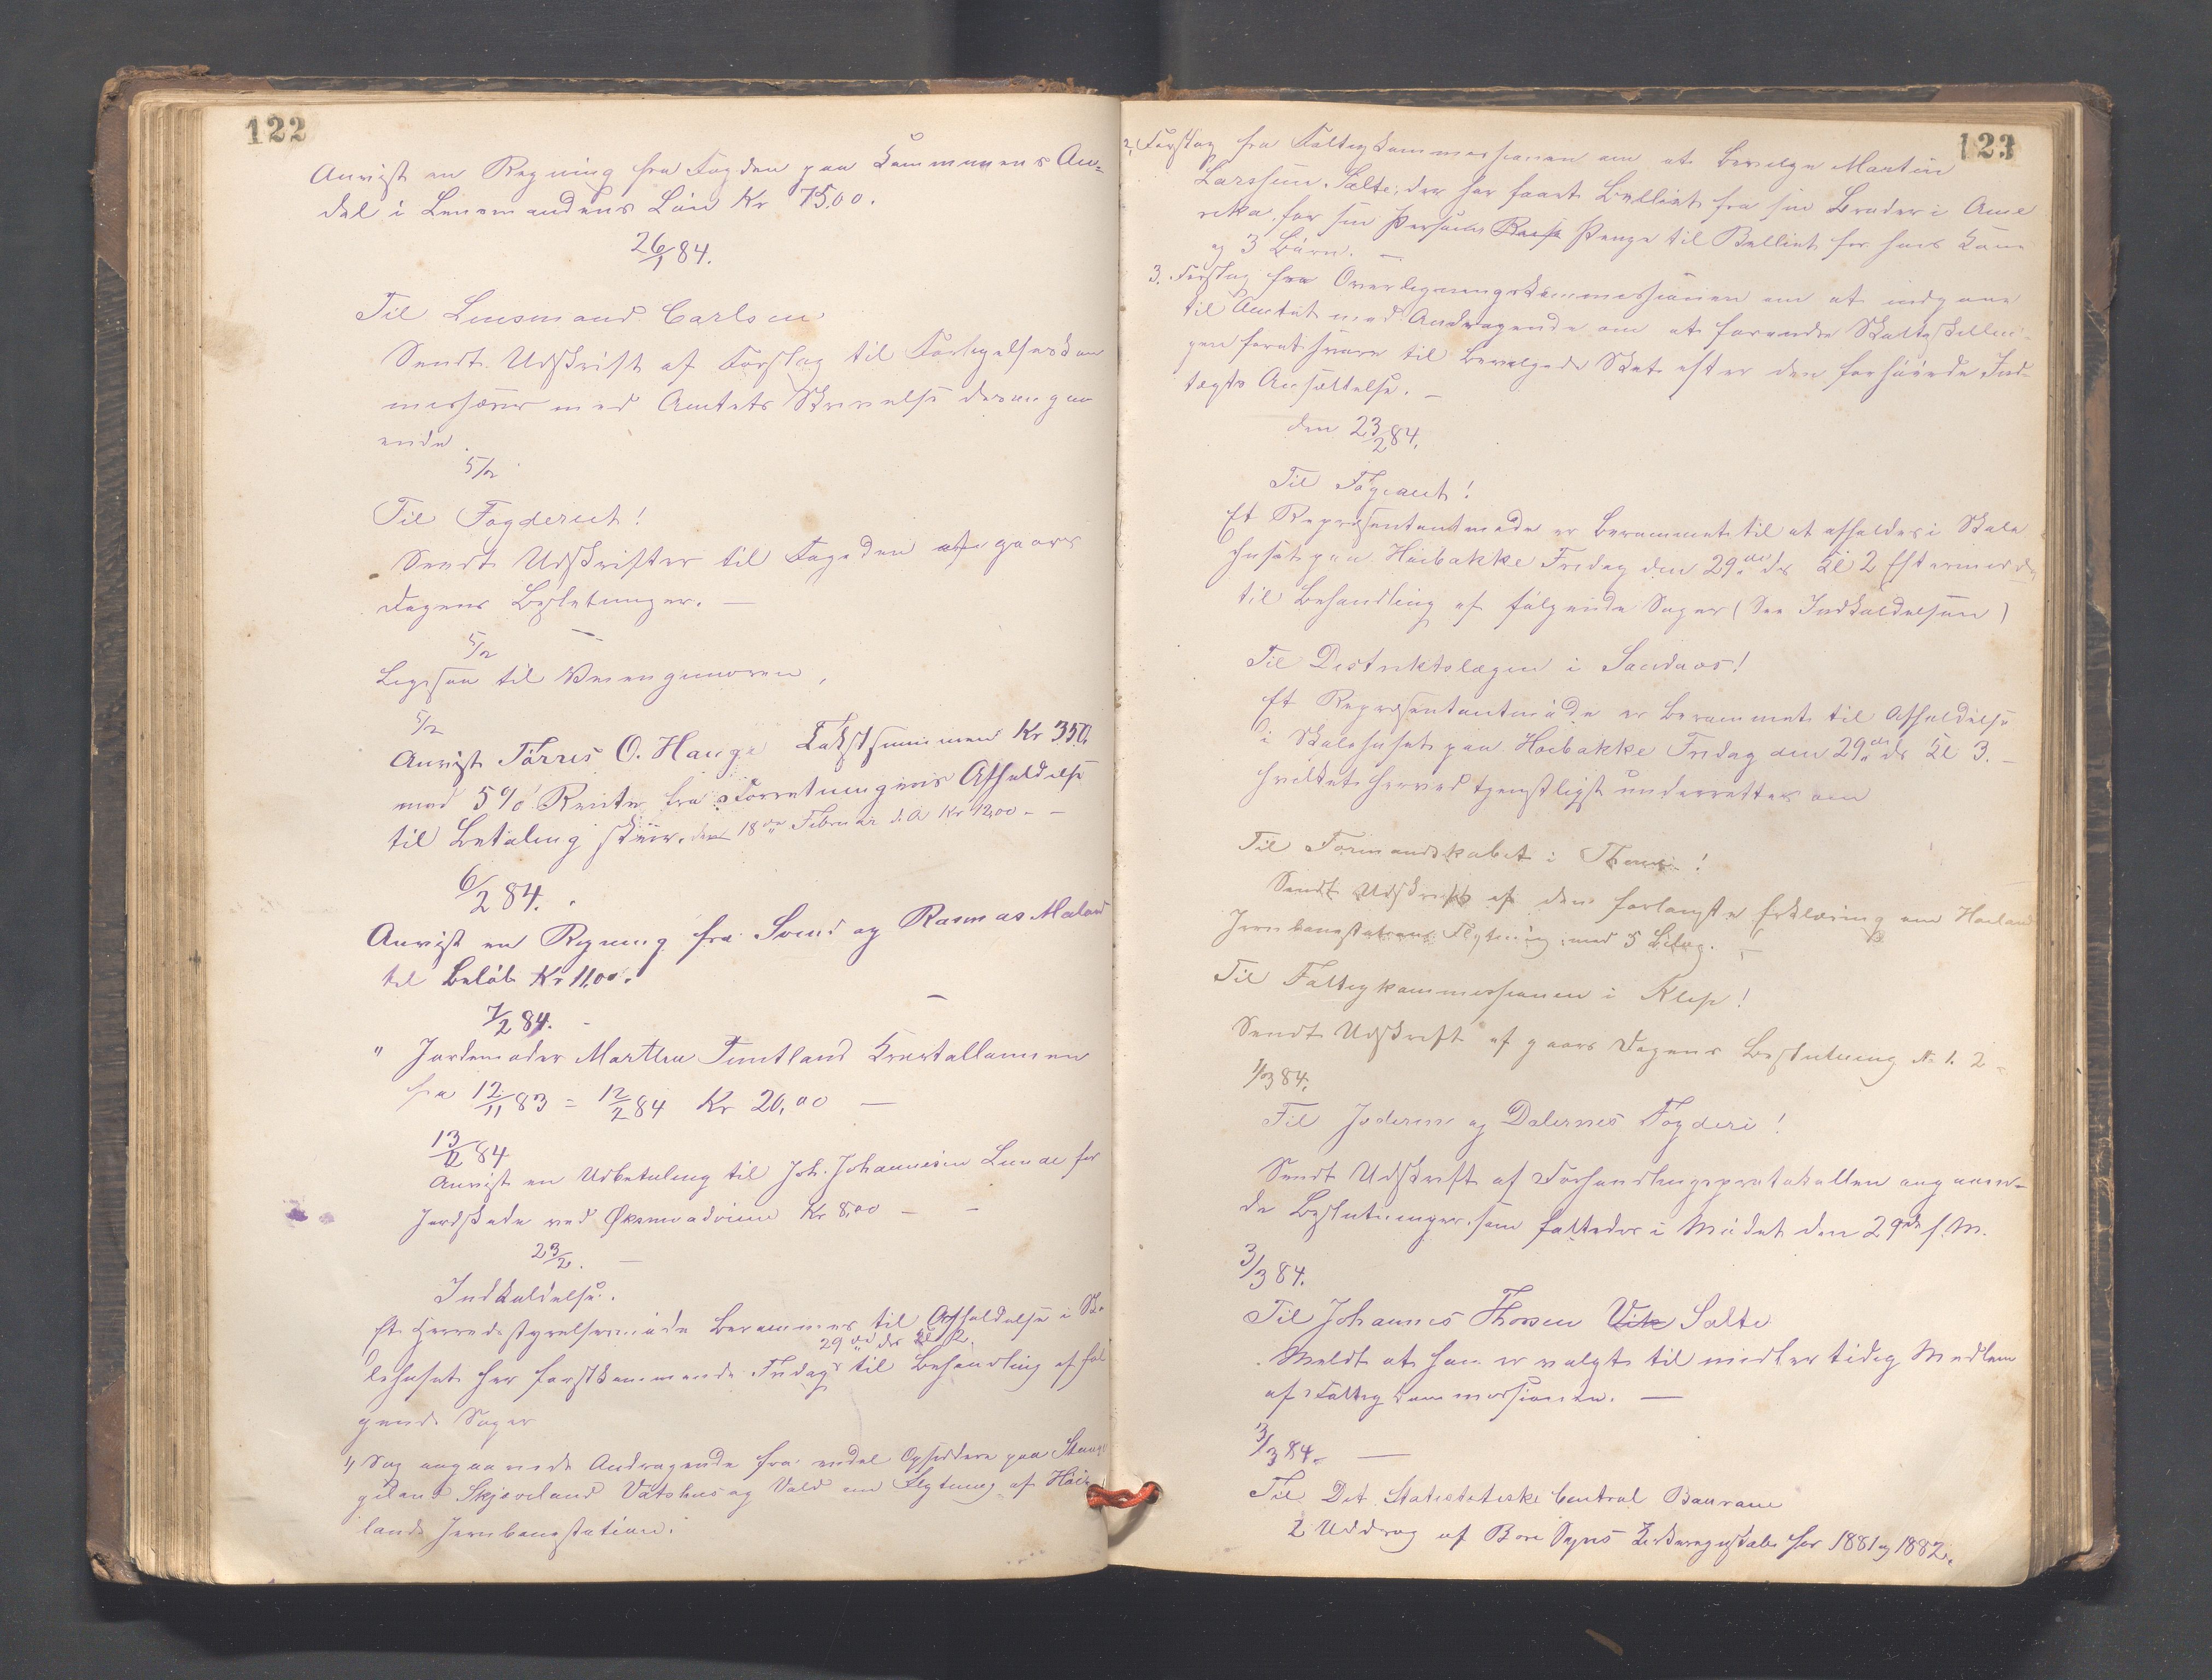 122
Anvist en Regning fra Fogden paa Kommunens An-
del i Lensmandens Løn Kr 75,00.
26/1 84.
Til Lensmand Carlsen
Sendt Udskrift af Forslag til Forligelseskom
missærer med Amtets Skrivelse desangaa
ende.
5/2
Til Fogderiet!
Sendt Udskrifter til Fogeden af gaars
Dagens Beslutninger. —
5/2
Ligesaa til
5/2
Anvist Tørres O. Hauge Takstsummen Kr 350,
med 5% Renter fra Forretningens Afholdelse
til Betaling skeer. den 18de Februar d. A Kr 12,00 - -
6/2 84.
Anvist en Regning fra Svend og Rasmus Maland
til Beløb Kr 11,00.
7/2 84. -
" Jordemoder Martha Tuntland Kvartallønnen
fra 12/11 83 = 12/2 84 Kr 20,00 —
13/2 84
Anvist en Udbetaling til Joh. Johannesen Lunde for
Jordskade ved Kr 8,00 - -
23/2. —
Indkaldelse.
Et Herredsstyrelsemøde berammes til Afholdelse i Sko
29de ds Kl 2
lehuset her førstkommende Fredag til Behandling af føl
gende Sager
1, Sag angaaende Andragende fra endel Opsiddere paa Stang
geland Skjæveland Vatshus og Vold om Flytning af Høi
lands Jernbanestation.
123
2, Forslag fra Fattigkommissionen om at bevilge Martin
Larssen Salte, der har faaet Billiet fra sin Broder i Ame
rika, for sin Person Penge til Billiet for hans Kone
og 3 Børn. —
3. Forslag fra Overligningskommissionen om at indgaae
til Amtet med Andragende om at forandre Skatteskillin
gen forat svare til bevilgede Skat efter den forhøiede Ind-
tægts Ansættelse. —
den 23/2 84.
Til Høgiant!
Et Repræsentantmøde er berammet til at afholdes i Skole
huset paa Høibakke Fredag den 29de ds Kl 2 Eftermidda
til Behandling af følgende Sager (See Indkaldelsen)
Til Distriktslægen i Sandnæs!
Et Repræsentantmøde er berammet til Afholdelse
i Skolehuset paa Høibakke Fredag den 29de ds Kl 3. —
hvilket herved tjenstligst underrettes om
Til Formandskabet i !
Sendt Udskrift af den forlangte Erklæring om Høiland
Jernbanestations Flytning, med 5 Bilag. —
Til Fattigkommissionen i Klep!
Sendt Udskrift af gaars Dagens Beslutning No 1. 2 -
1/3 84.
Til Jæderen og Dalernes Fogderi!
Sendt Udskrift af Forhandlingsprotokollen angaaen-
de Beslutninger, som fattedes i Mødet den 29de f. M.
3/3 84.
Til Johannes Thorsen Vik Salte
Meldt at han er valgt til midlertidig Medlem
af Fattigkommissionen. —
3/3 84. —
Til Det Statistiske Central Bauraue
2 Uddrag af Bore Sogns Kirkeregnskab for 1881 og 1882.